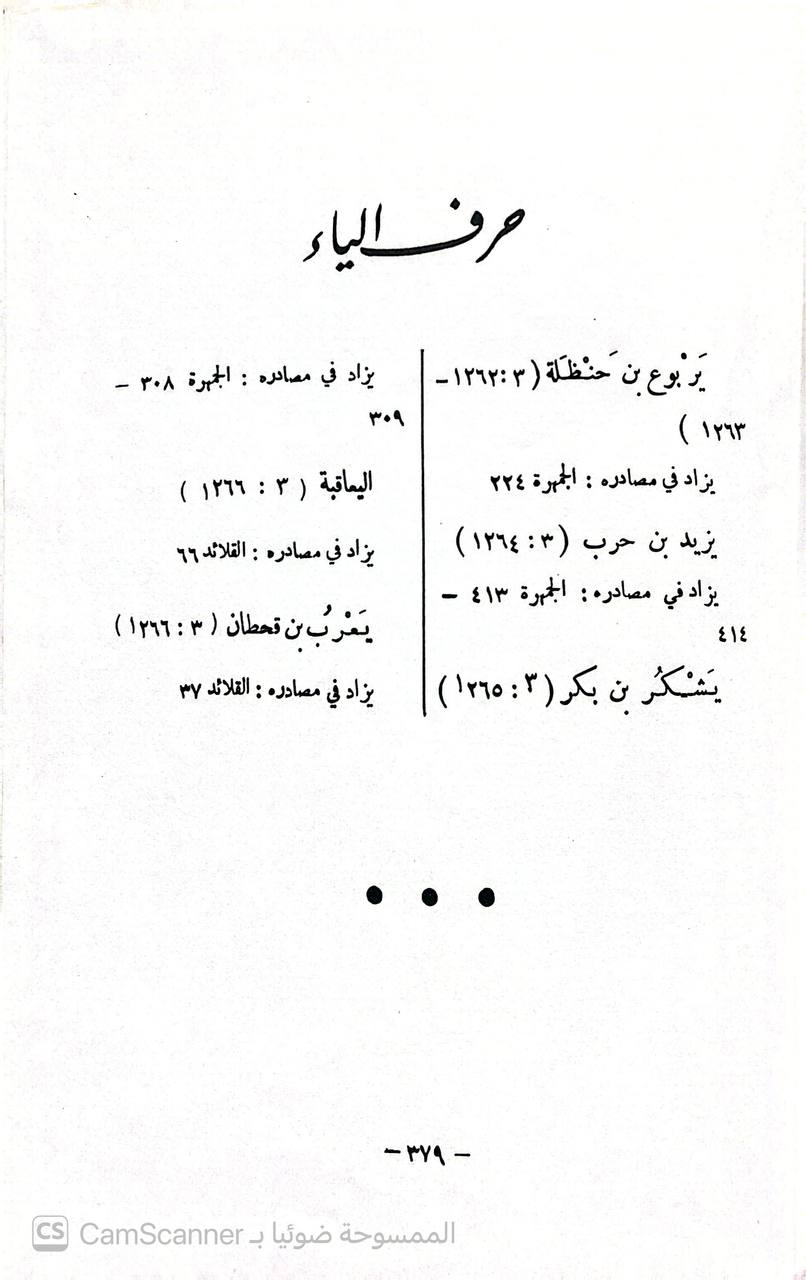 حرف الياء
يَرْبوع بن حَنْظَلَة (٣ :١٢٦٢ـ
١٢٦٣ )
يزاد في مصادره : الجمهرة ٢٢٤
يزيد بن حرب (٣ : ١٢٦٤)
يزاد في مصادره : الجمهرة ٤١٣ –
٤١٤
يَشْكُر بن بكر (٣ : ١٢٦٥)
يزاد في مصادره : الجمهرة ٣٠٨ –
٣٠٩
اليعاقبة ( ٣ : ١٢٦٦ )
يزاد في مصادره : القلائد ٦٦
يَعْرُب بن قحطان (٣ : ١٢٦٦)
يزاد في مصادره : القلائد ٣٧
– ٣٧٩ –
CS CamScanner الممسوحة ضوئيا بـ